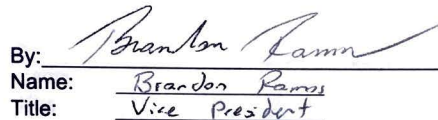 By: Brandon Ramos
Name: Brandon Ramos
Title: Vice President